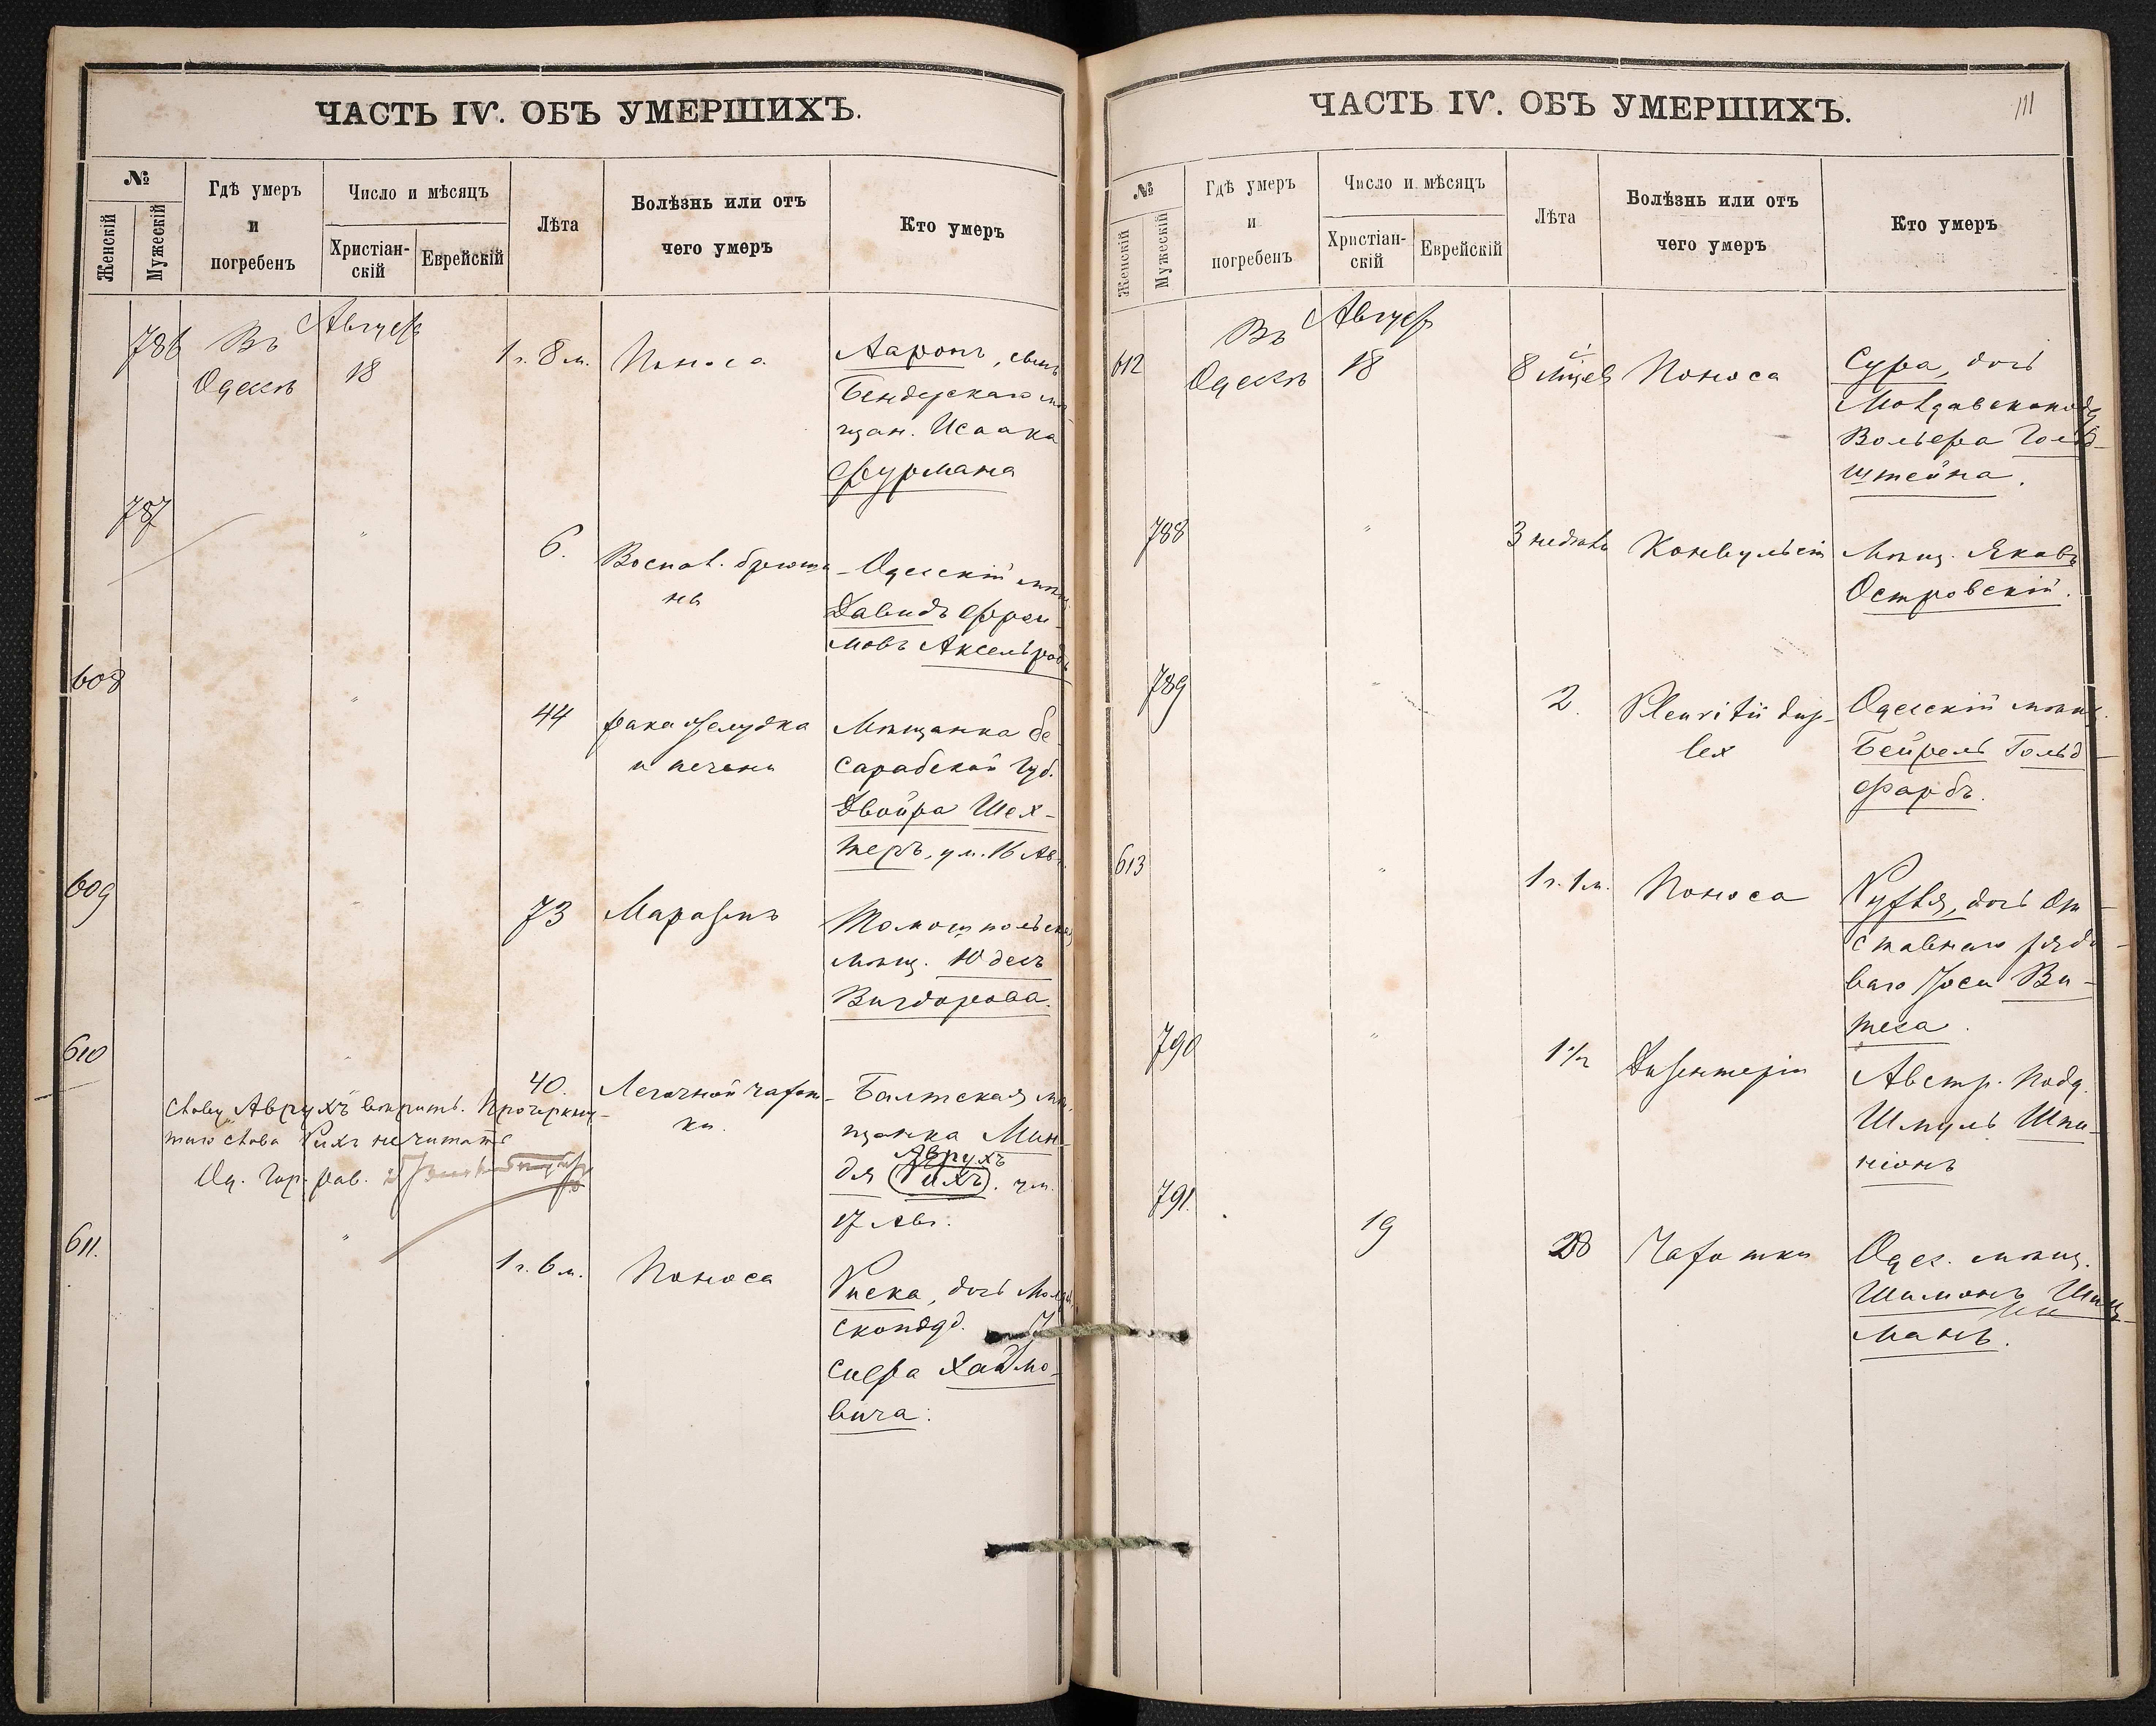 ЧАСТЬ IV. ОБЪ УМЕРШИХЪ.
№
Женскій
Мужескій
Гдѣ умеръ
и
погребенъ
Число и мѣсяцъ
Христіан-
скій
Еврейскій
Лѣта
Болѣзнь или отъ
чего умеръ
Кто умеръ
786
Въ
Одессѣ
Август
18
1 г. 8 м.
Поноса
Ааронъ, сынъ
Бендерскаго мѣ
щан. Исаака
Фурмана
787
"
6.
Воспал. брюши
ны
Одесскій мѣщ.
Давидъ Фрои-
мовъ Аксельродъ
608
"
44
Рака желудка
и печени
Мѣщанка бе
сарабской Губ.
Двойра Шех-
теръ, ум. 16 Ав.
609
"
73
Маразмъ
Томошпольская
мѣщ. Юдесъ
Вигдорова.
610
"
40.
Легочной чахот-
ки.
Балтская мѣ-
щанка Мин-
Аврухъ
дя Рихъ. ум.
17 Авг.
слову Аврухъ вѣрить. Прочеркну-
таго слова Рихъ не читать
Од. Гор. рав.
611.
"
1 г. 6 м.
Поноса
Риска, дочь Молдав.
скоподд. І
сифа Хаймо-
вича.
ЧАСТЬ IV. ОБЪ УМЕРШИХЪ.
111
№
Женскій
Мужескій
Гдѣ умеръ
и
погребенъ
Число и мѣсяцъ
Христіан-
скій
Еврейскій
Лѣта
Болѣзнь или отъ
чего умеръ
Кто умеръ
612
Въ
Одессѣ
Август
18
8 мѣсев
Поноса
Сура, дочь
Молдавскопод
Вольфа Гольд-
штейна.
788
"
3 недѣль
Конвульсіи
Мѣщ. Яковъ
Островскій.
789
"
2.
Pleuritii dup-
lex
Одесскій мѣщ.
Бейрель Гольд-
фарбъ.
613
"
1 г. 1 м.
Поноса
Рухля, дочь От-
ставнаго рядо-
ваго Іоси Ви-
теса.
790
"
1 1/2
Дизентеріи
Австр. подд.
Шмуль Шпи-
ніонъ
791.
19
28
Чахотки
Одес. мѣщ.
Шимонъ
манъ.